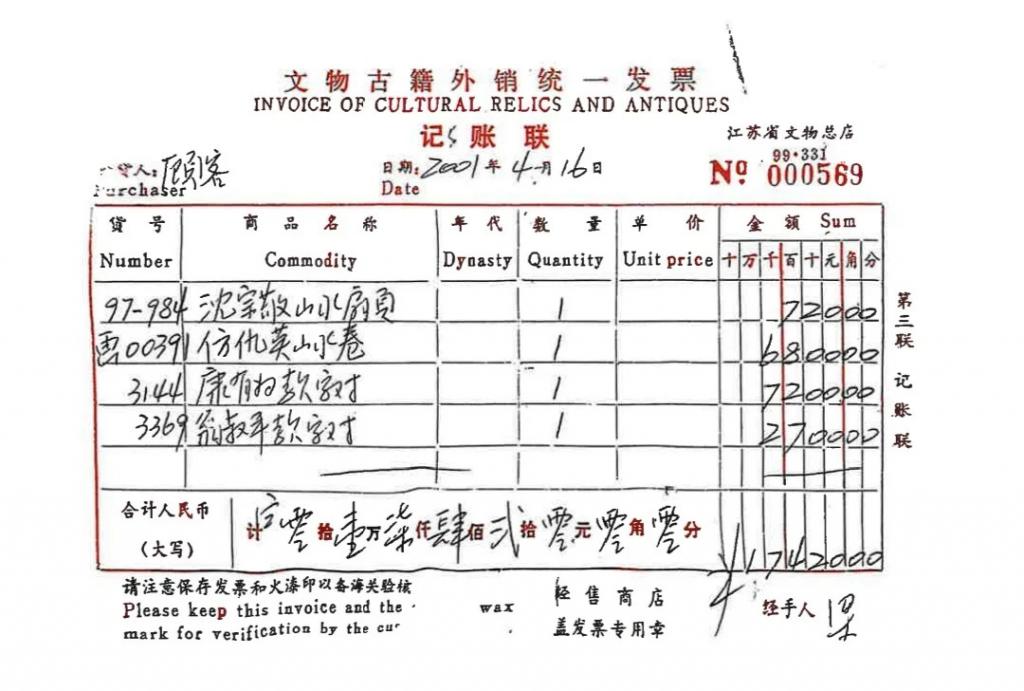 文物古籍外销统一发票
INVOICE OF CULTURAL RELICS AND ANTIQUES
记账联
江苏省文物总店
99·331
Nº 000569
货人: 顾客
Purchaser
日期: 2001年4月16日
Date
货号 商品名称 年代 数量 单价 金额 Sum
Number Commodity Dynasty Quantity Unit price 十万千百十元角分
97-984 沈宗敬山水扇页 1 72000
00391 仿仇英山水卷 1 680000
3144 康有为款字对 1 720000
3369 翁叔平款字对 1 270000
合计人民币
(大写)
计 零拾壹万柒仟肆佰贰拾零元零角零分 ¥1742000
第三联 记账联
请注意保存发票和火漆印以备海关验核
Please keep this invoice and the wax
mark for verification by the
经售商店
盖发票专用章
经手人